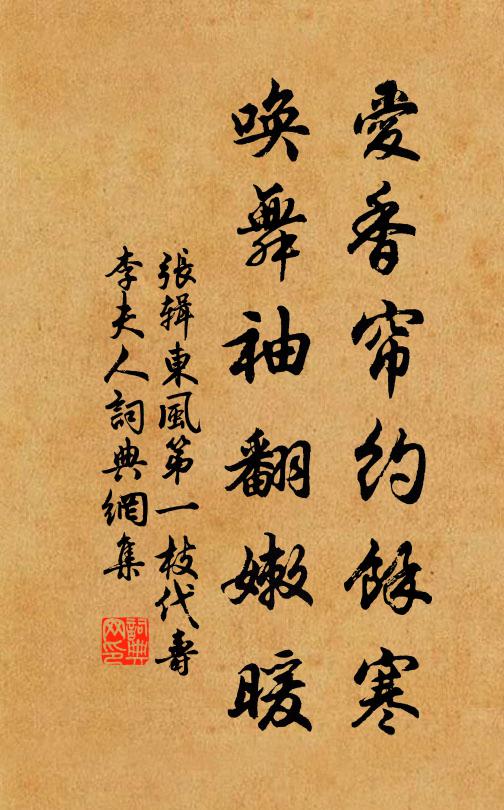 愛香帘約餘寒
喚舞袖翻嫩暖
張輯東風第一枝代壽
李夫人詞典網集
詞典
网印